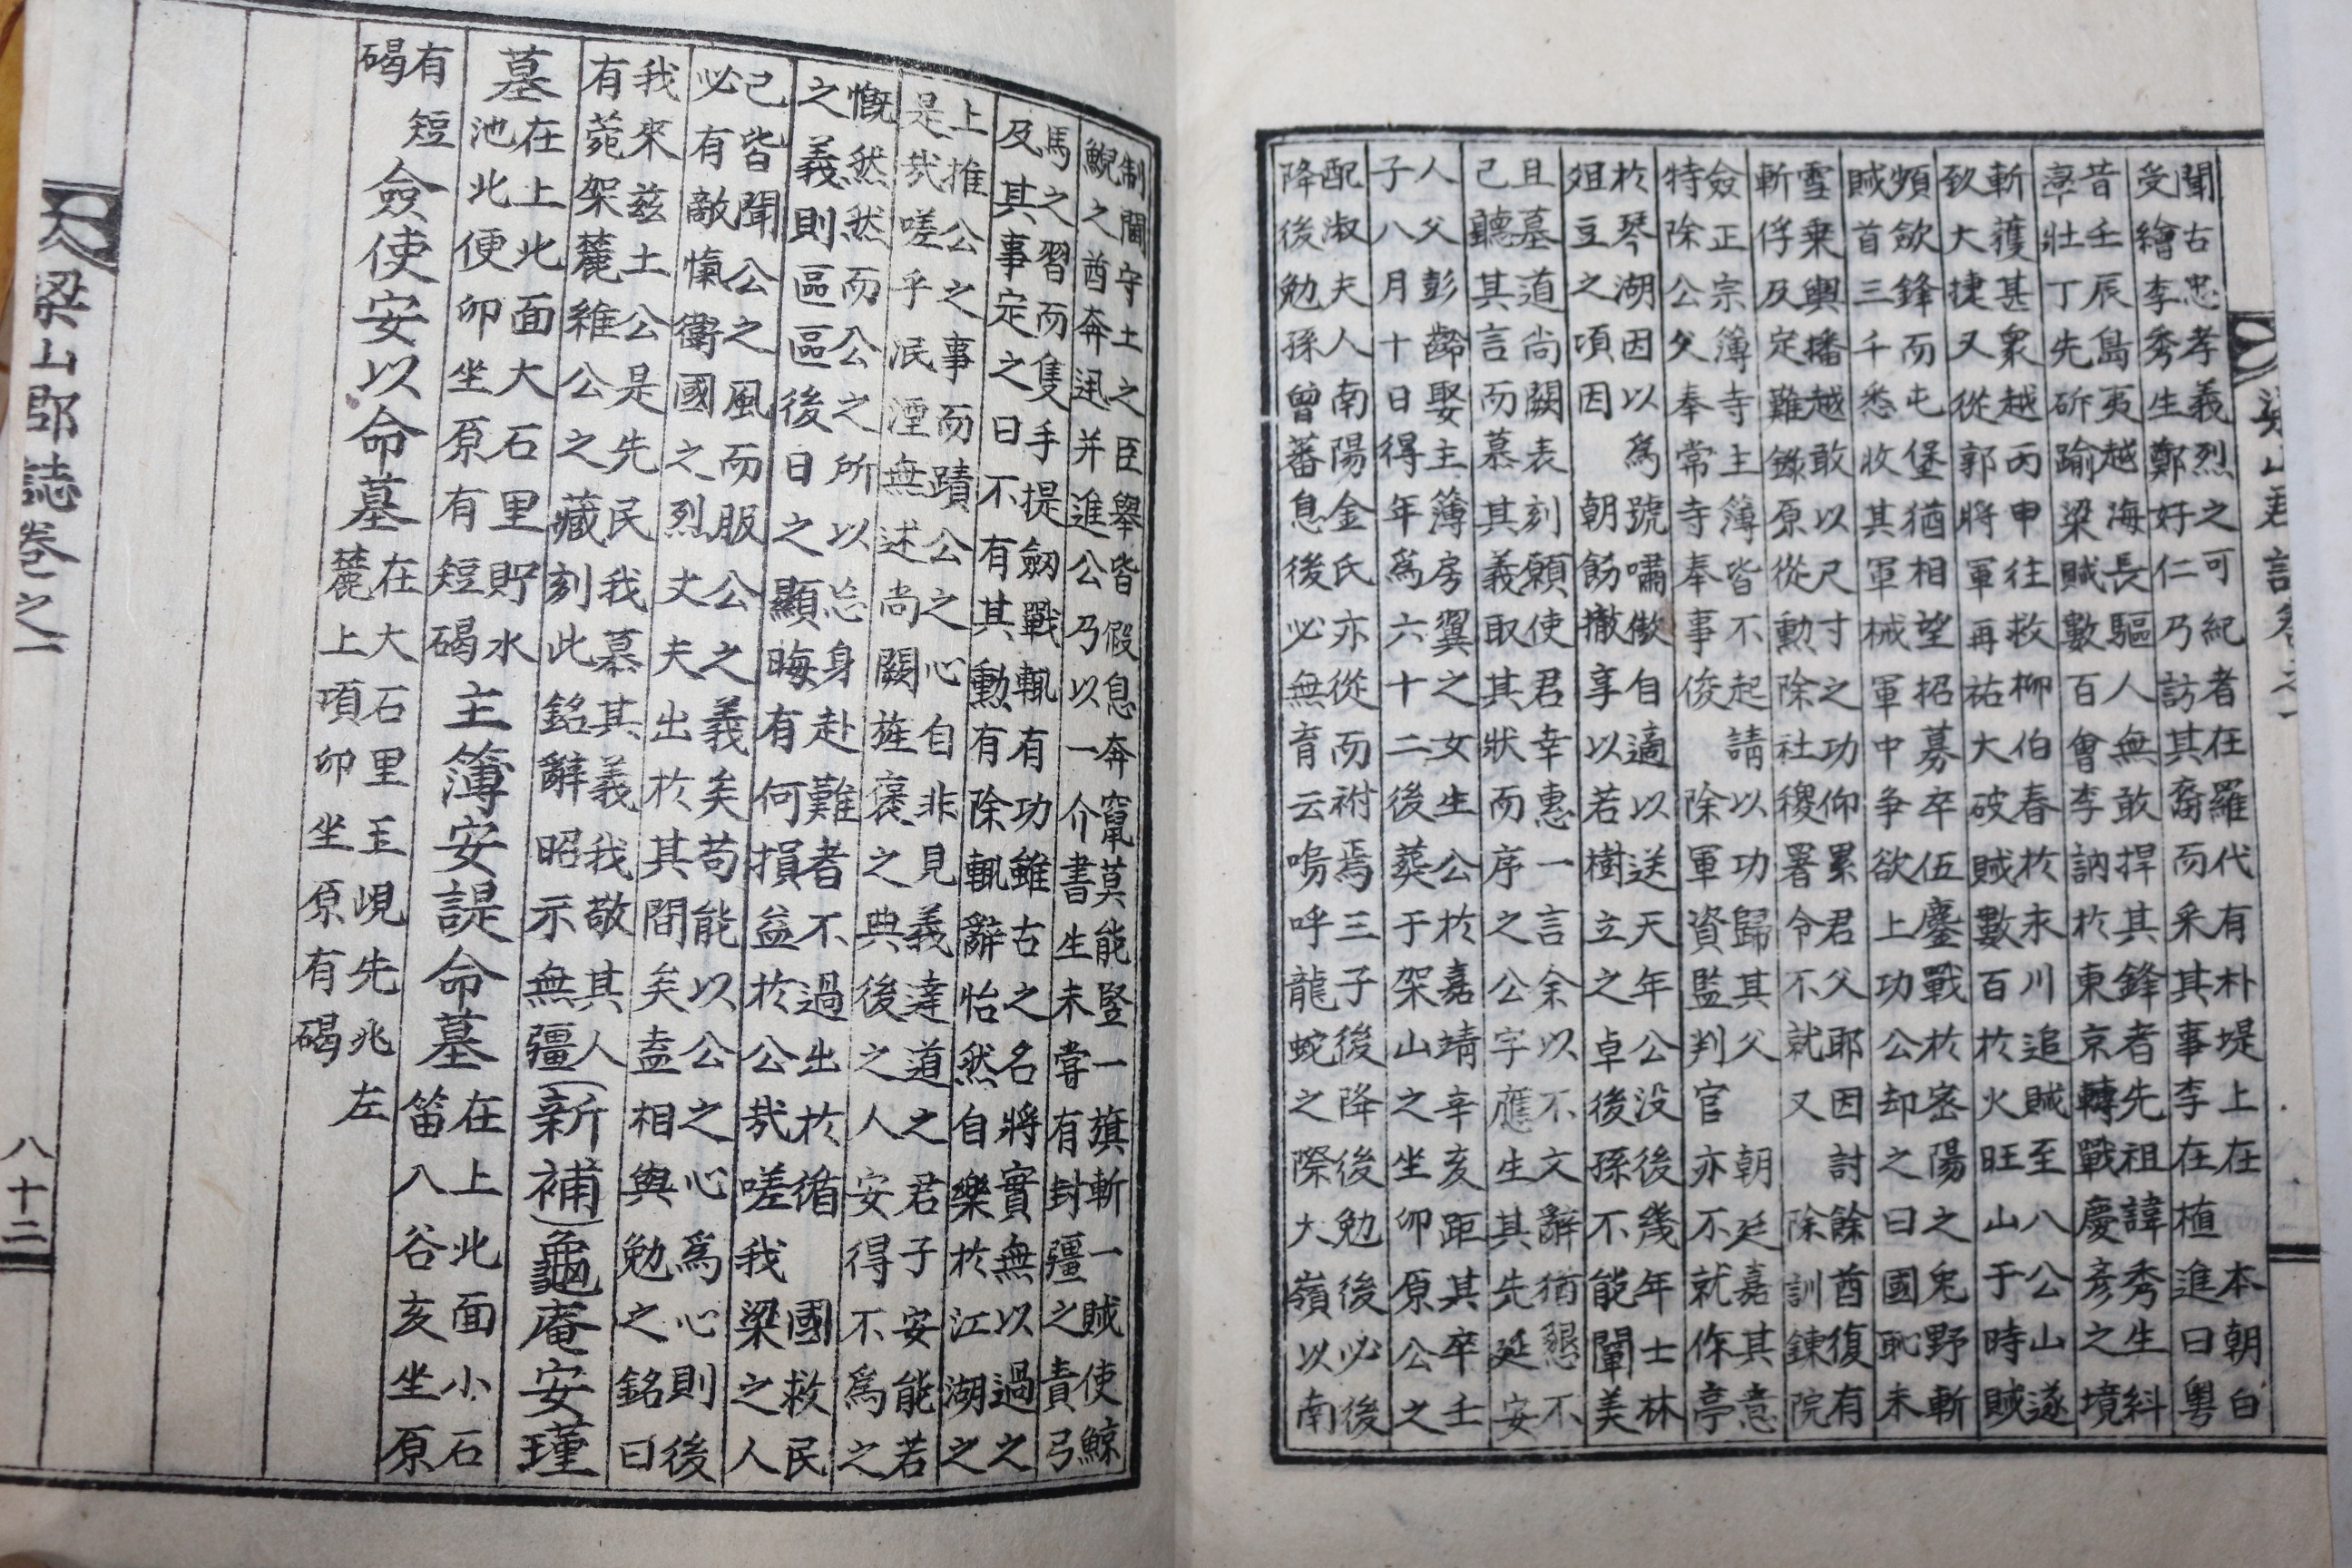 聞古忠孝義烈之可紀者在羅代有朴堤上在 本朝白
受繪李秀生鄭好仁乃訪其裔而采其事李在植進曰粤
昔壬辰島夷越海長驅人無敢捍其鋒者先祖諱秀生糾
率壯丁先斫踰梁賊數百會李訥於東京轉戰慶彦之境
斬獲甚衆越丙申往救柳伯春於永川追賊至八公山遂
致大捷又從郭將軍再祐大破賊數百於火旺山于時賊
頻歛鋒而屯堡猶相望招募卒伍鏖戰於密陽之兎野斬
賊首三千悉收其軍械軍中争欲上功公却之曰國恥未
雪乗輿播越敢以尺寸之功仰累君父耶因討餘酋復有
斬俘及定難錄原從勳除社稷署令不就又 除訓鍊院
僉正宗簿寺主簿皆不起請以功歸其父 朝廷嘉其意
特除公父奉常寺奉事俊 除軍資監判官亦不就作亭
於琴湖因以爲號嘯傲自適以送天年公没後幾年士林
俎豆之項因 朝飭撤享以若樹立之卓後孫不能闡美
且墓道尚闕表刻願使君幸惠一言余以不文辭猶懇不
己聽其言而慕其義取其狀而序之公字應生其先延安
人父彭齡娶主簿房翼之女生公於嘉靖辛亥距其卒壬
子八月十日得年爲六十二後葬于架山之坐卯原公之
配淑夫人南陽金氏亦從而祔焉三子後降後勉後必後
降後勉孫曾蕃息後必無育云嗚呼龍蛇之際大嶺以南
制閫守土之臣擧皆假息奔竄莫能竪一旗斬一賊使鯨
鯢之酋奔迅并進公乃以一介書生未嘗有封疆之責弓
馬之習而隻手提劒戰輒有功雖古之名將實無以過之
及其事定之日不有其勳有除輒辭怡然自樂於江湖之
上推公之事而蹟公之心自非見義達道之君子安能若
是哉嗟乎泯湮無述尚闕旌褒之典後之人安得不爲之
慨然然而公之所以忘身赴難者不過出於循 國救民
之義則區區後日之顯晦有何損益於公哉嗟我梁之人
己皆聞公之風而服公之義矣苟能以公之心爲心則後
必有敵愾衛國之烈丈夫出於其間矣盍相與勉之銘曰
我來兹土公是先民我慕其義我敬其人
有菀架麓維公之藏刻此銘辭昭示無疆
(新補)龜庵安瑾
墓
在上北面大石里貯水
池北便卯坐原有短碣
主簿安諟命墓
在上北面小石
笛八谷亥坐原
有短
碣
僉使安以命墓
在大石里玉峴先兆左
麓上項卯坐原有碣
梁山郡誌卷之一
八十二